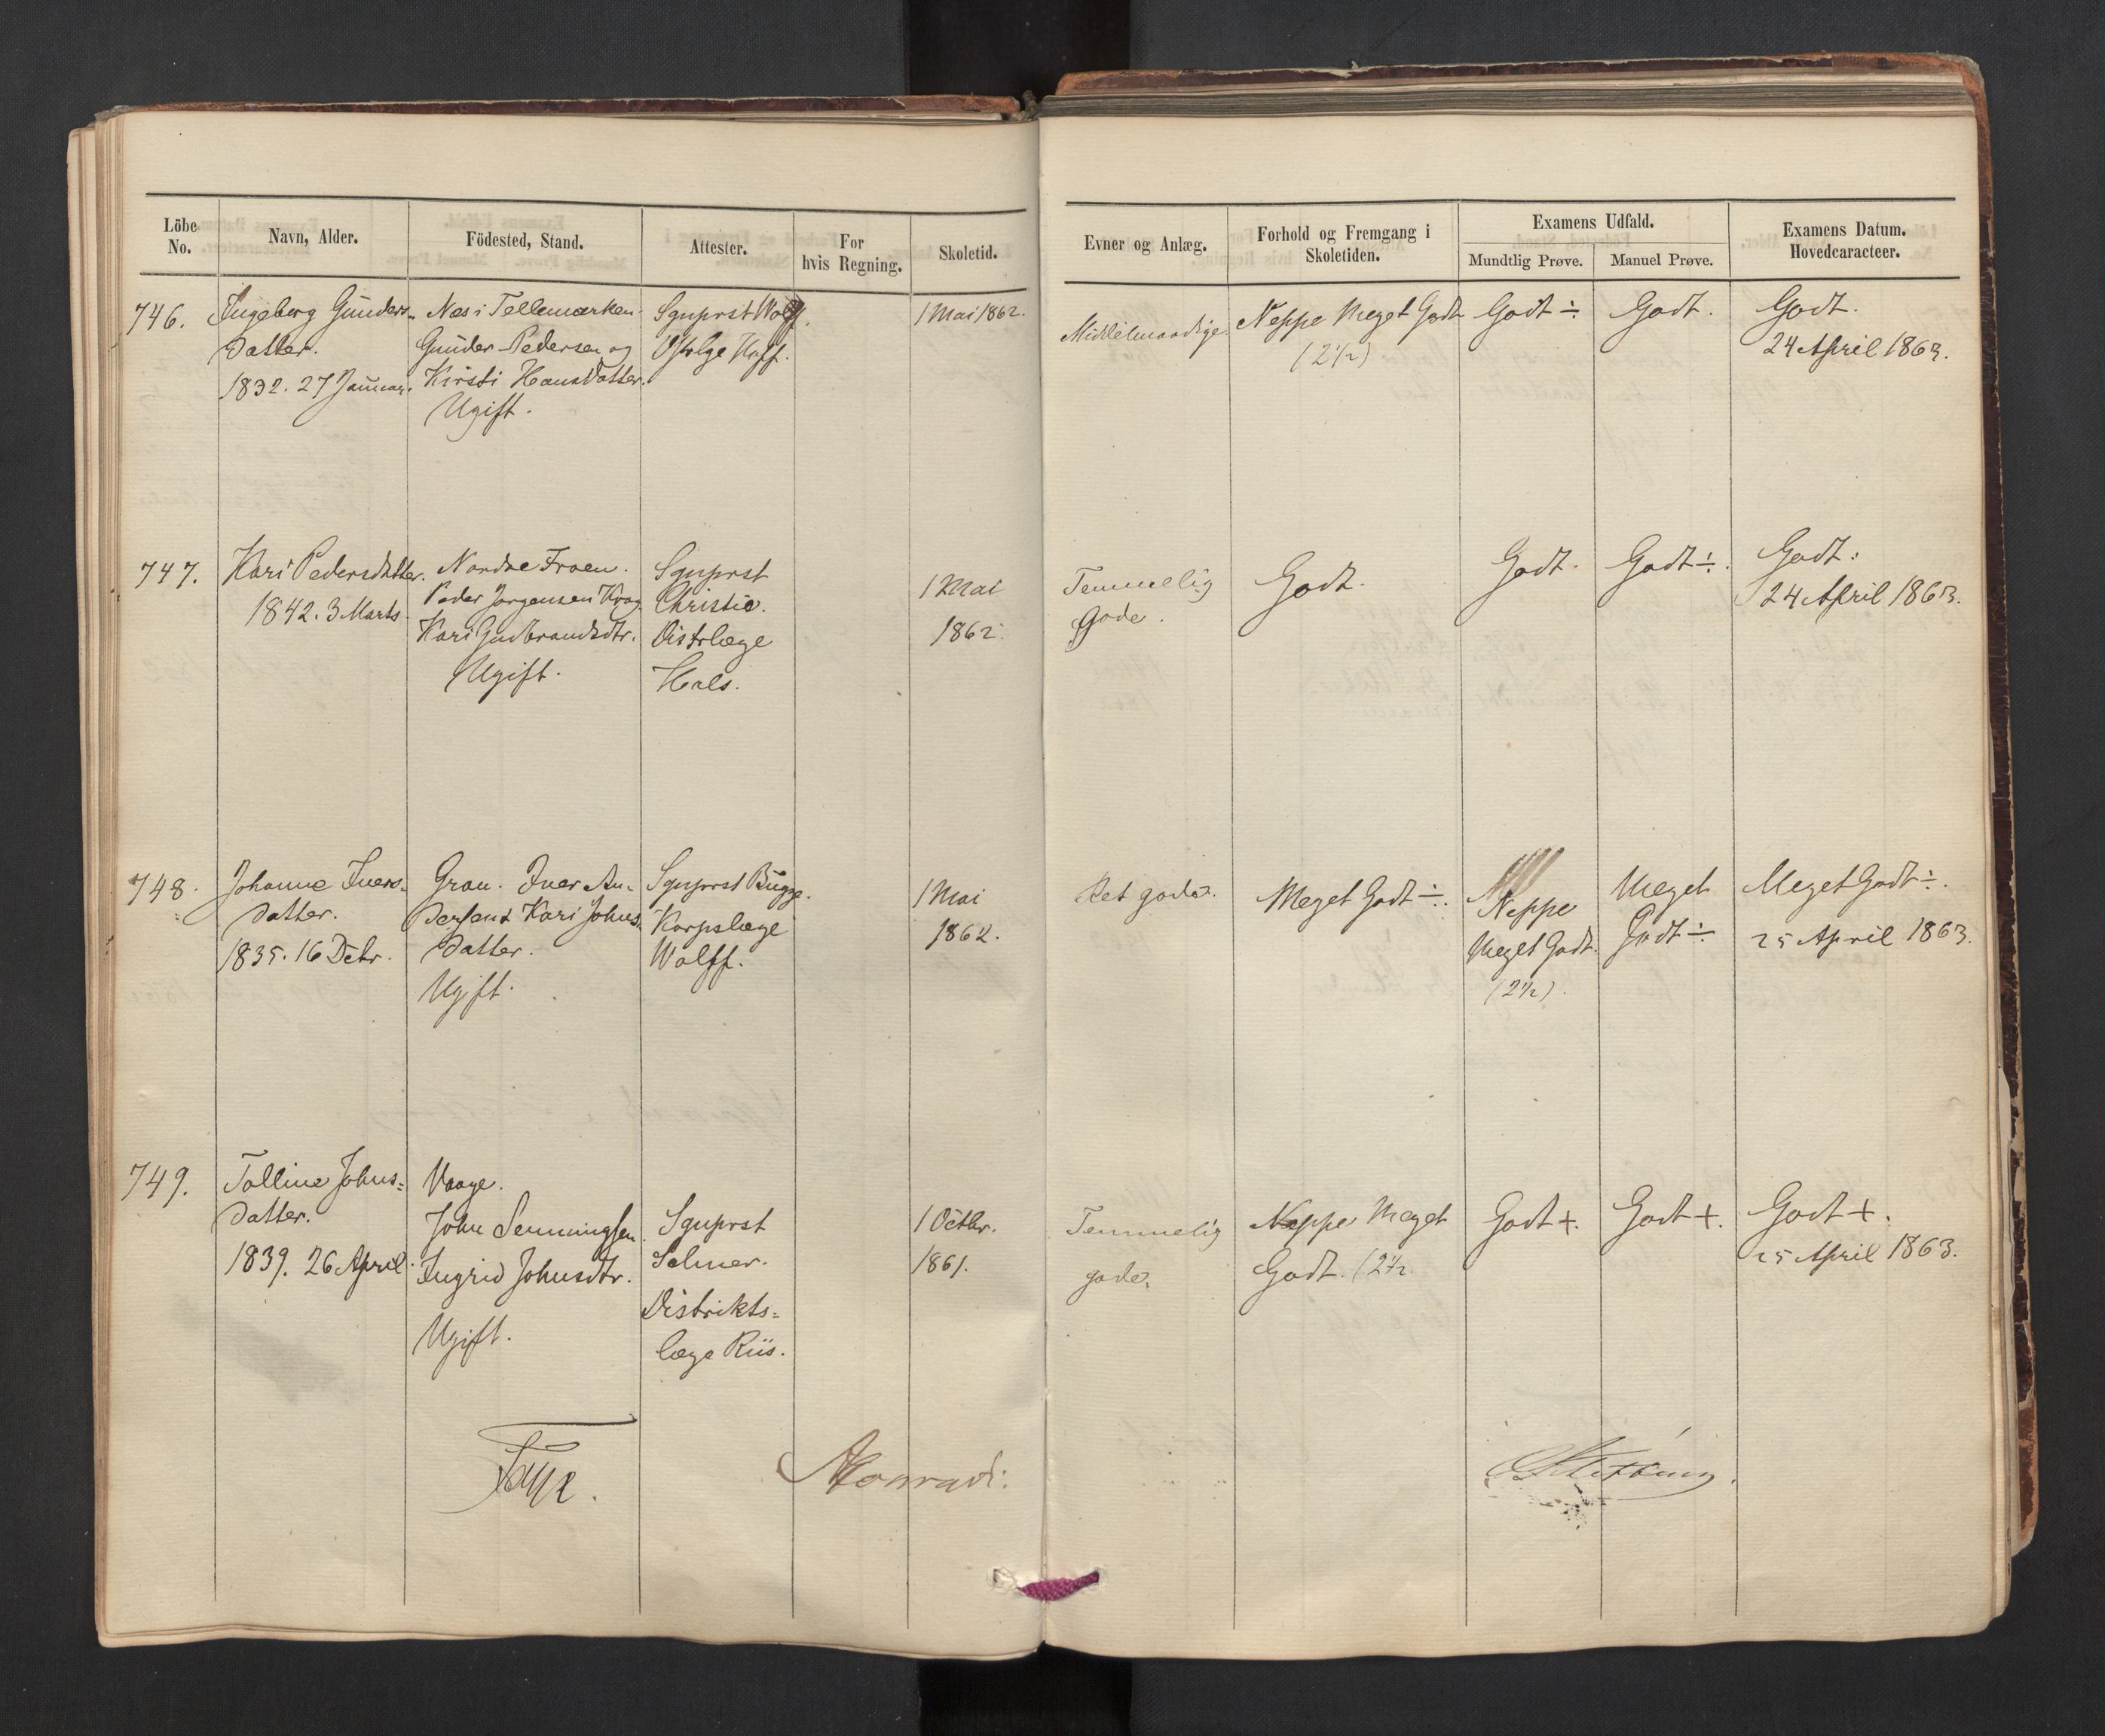 Löbe No.
Navn, Alder.
Födested, Stand.
Attester.
For hvis Regning.
Skoletid.
Evner og Anlæg.
Forhold og Fremgang i Skoletiden.
Examens Udfald.
Mundtlig Prøve.
Manuel Prøve.
Examens Datum. Hovedcaracteer.
746.
Ingeborg Gunders-
datter.
1832. 27 Januar.
Nes i Tellemarken
Gunder Pedersen og
Kirsti Hansdatter.
Ugift.
Sgnprst Wolff.
Hoff.
1 Mai 1862.
Middelmaadige
Neppe Meget Godt
(2½)
Godt ÷
Godt.
Godt.
24 April 1863.
747.
Kari Pedersdatter.
1842. 3 Marts
Nordre Froen.
Peder Jorgensen Krog
Kari Gudbrandsdtr.
Ugift.
Sgnprst
Christie.
Distrlæge
Hals.
1 Mai
1862.
Temmelig
gode.
Godt.
Godt.
Godt ÷.
Godt.
24 April 1863.
748.
Johanne Ivers-
datter.
1835. 16 Debr.
Gran. Iver An-
dersen & Kari Johns-
datter.
Ugift.
Sgnprst Bugge.
Korpslæge
Wolff.
1 Mai
1862.
Ret gode.
Meget Godt ÷.
Neppe
Meget Godt.
(2½).
Meget
Godt ÷
Meget Godt ÷.
25 April 1863.
749.
Tolline Johns=
datter.
1839. 26 April.
Vaage.
John Simmingsen
Ingrid Johnsdtr.
Ugift.
Sgnprst
Solmer.
Distrikts=
læge Riis.
1 Octbr.
1861.
Temmelig
gode.
Neppe Meget
Godt. (2½
Godt +.
Godt +.
Godt +.
25 April 1863.
Faye.
Monrad.